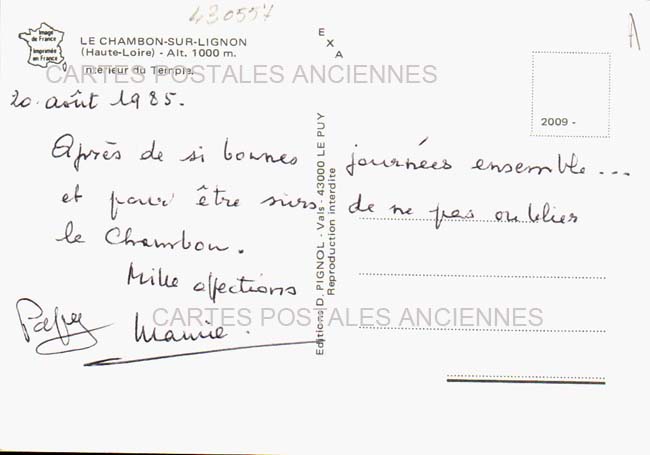 430557
A
Image de France
Imprimée en France
LE CHAMBON-SUR-LIGNON
(Haute-Loire) - Alt. 1000 m.
Intérieur du Temple.
EXA
CARTES POSTALES ANCIENNES
20. août 1985.
2009 -
Après de si bonnes journées ensemble...
et pour être surs de ne pas oublier
le Chambon.
Mille affections
Papy Mamie.
CARTES POSTALES ANCIENNES
Editions D. PIGNOL - Vals - 43000 LE PUY
Reproduction interdite